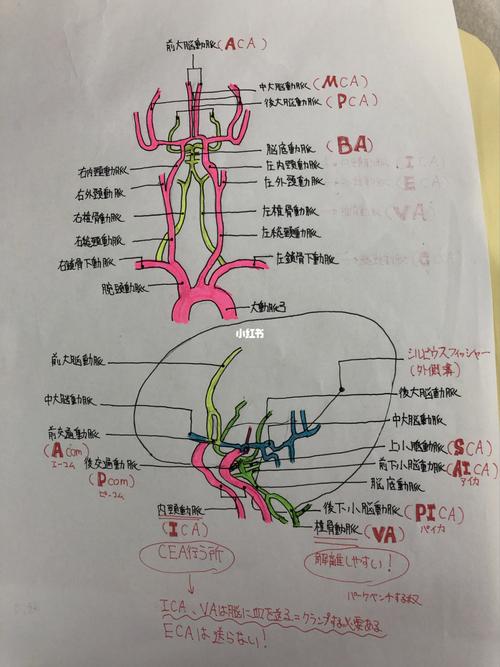 前大脳動脈(ACA)
中大脳動脈(MCA)
後大脳動脈(PCA)
脳底動脈(BA)
右内頸動脈
左内頸動脈
ICA)
右外頸動脈
左外頸動脈
ECA)
右椎骨動脈
左椎骨動脈
VA)
右総頸動脈
左総頸動脈
右鎖骨下動脈
左鎖骨下動脈
腕頭動脈
大動脈弓
小红书
前大脳動脈
シルビウスフィッシャー
(外側溝)
中大脳動脈
後大脳動脈
中大脳動脈
前交通動脈
(Acom)
エーコム
上小脳動脈(SCA)
後交通動脈
(Pcom)
ピーコム
前下小脳動脈(AICA)
アイカ
脳底動脈
内頸動脈
(ICA)
後下小脳動脈(PICA)
パイカ
椎骨動脈(VA)
CEA行う所
解離しやすい!
パークベンチする
ICA、VAは脳に血を送る=クランプする必要ある
ECAは送らない!